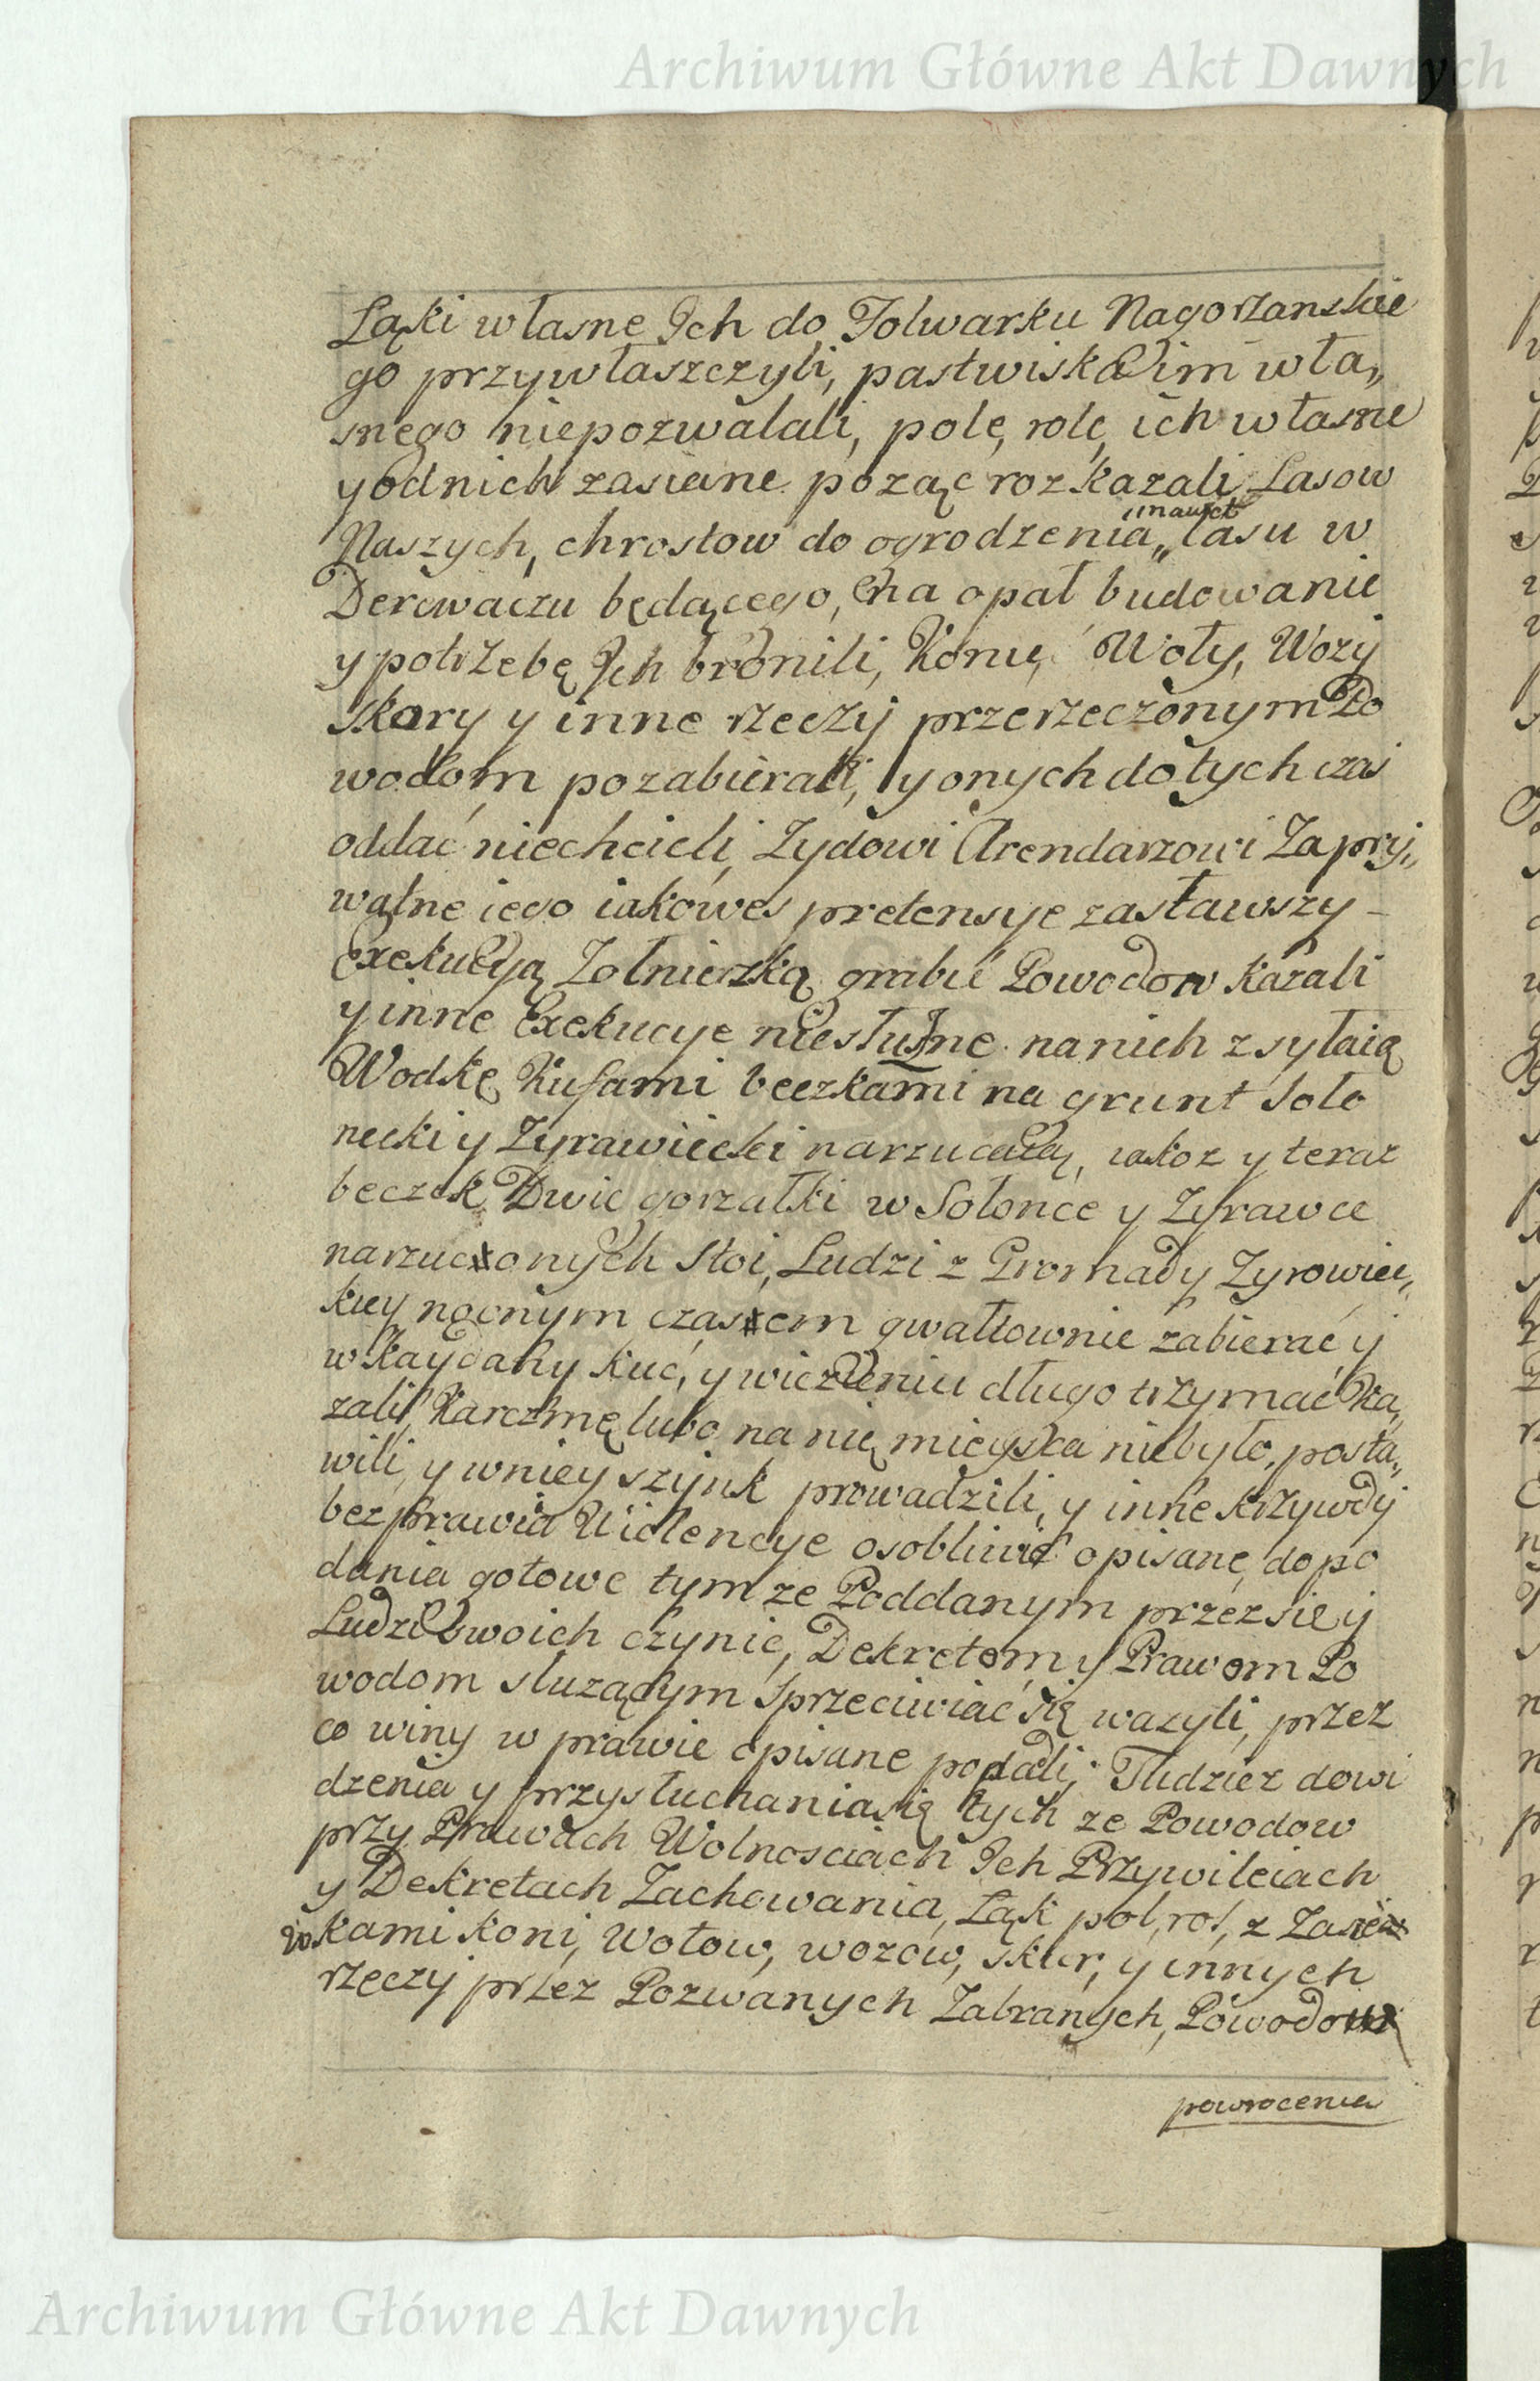 Archiwum Główne Akt Dawnych
Łąki własne Ich do Folwarku Nagorzanskie
go przywłaszczyli, pastwiska im wła„
snego niepozwalali, pole, role, ich własne
y od nich zasiane pożąc rozkazali, Lasow
Naszych, chrostow do ogrodzenia „nawet lasu w
Derewaczu będącego, na opał budowanie
y potrzebę Ich bronili, Konie, Woły, Wozy
skory y inne rzeczy przerzeczonym Po
wodom pozabierali, y onych dotych czas
oddać niechcieli, Zydowi Arendarzowi Za pry„
watne iego iakowes pretensye zastawszy –
Exekucyą Zołnierzką grabić Powodow kazali
y inne Exekucye niesłuszne na nich zsyłaią
Wodkę Kufami beczkami na grunt Soło
necki y Zyrawiecki narzucaią, iakoz y teraz
beczek Dwie gorzałki w Sołonce y Zyrawce
narzuconych stoi, Ludzi z Gromady Zyrowiec„
kiey nocnym czasem gwałtownie zabierać y
w Kaydany kuć, y więzieniu długo trzymać Ka„
zali, Karczmę lubo na nię mieysca niebyło, posta„
wili, y w niey szynk prowadzili, y inne krzywdy
bezprawia Wiolencye osobliwie opisane, do po
dania gotowe tym ze Poddanym przez się y
Ludzi Swoich czynic, Dekretom y Prawom Po
wodom słuzącym sprzeciwiać się wazyli, przez
co winy w prawie opisane popadli; Tudziez dowi
dzenia y przysłuchania się tych ze Powodow
przy Prawach Wolnosciach Ich Przywileiach
y Dekretach Zachowania, Łąk pol, rol, z Zasie
wkami koni, Wołow, wozow, skur, y innych
rzeczy przez Pozwanych Zabranych, Powodow
powrocenia
Archiwum Główne Akt Dawnych